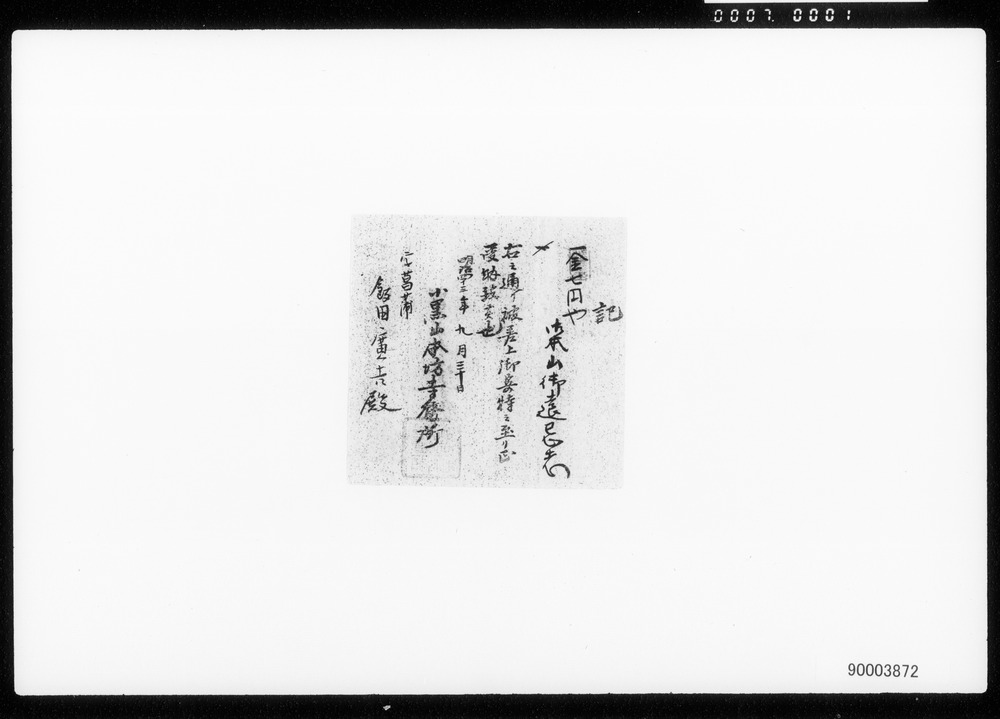 0007 0001
記
一金七円也
御本山御遠忌志
〆
右之通り被差上御奇特之至り正
受納致候也
明治四十三年九月三十日
小黒山本坊寺務所
字菖蒲
飯田廣吉殿
90003872